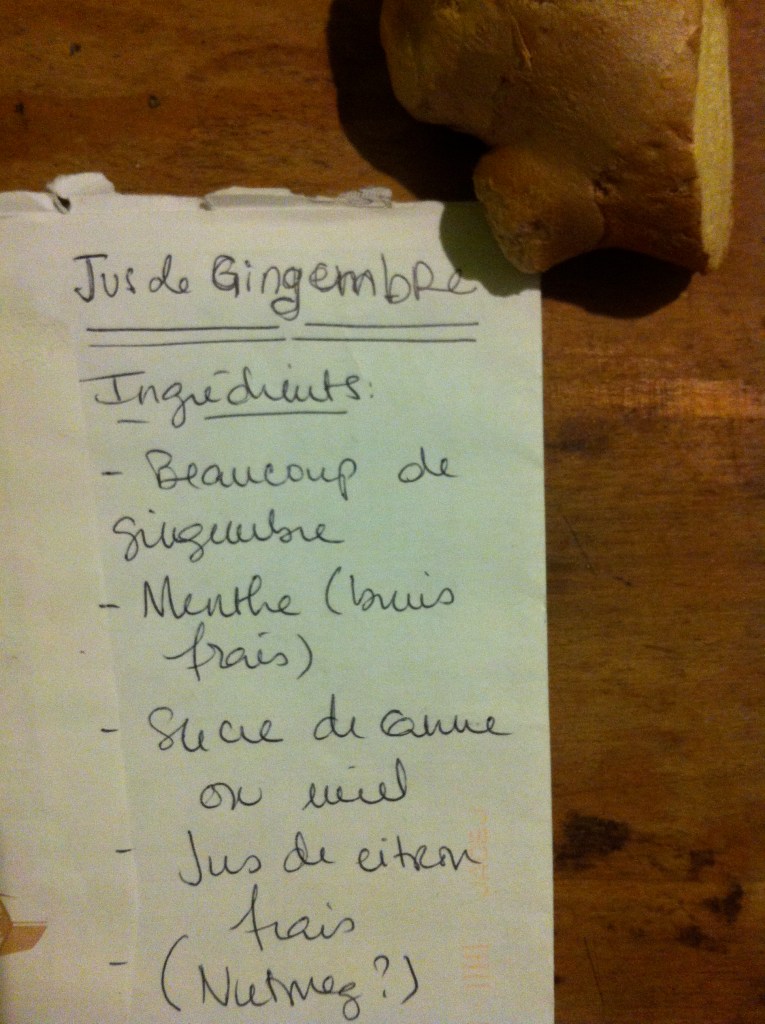 Jus de Gingembre
Ingrédients:
- Beaucoup de
gingembre
- Menthe (brins
frais)
- Sucre de canne
ou miel
- Jus de citron
frais
- (Nutmeg?)